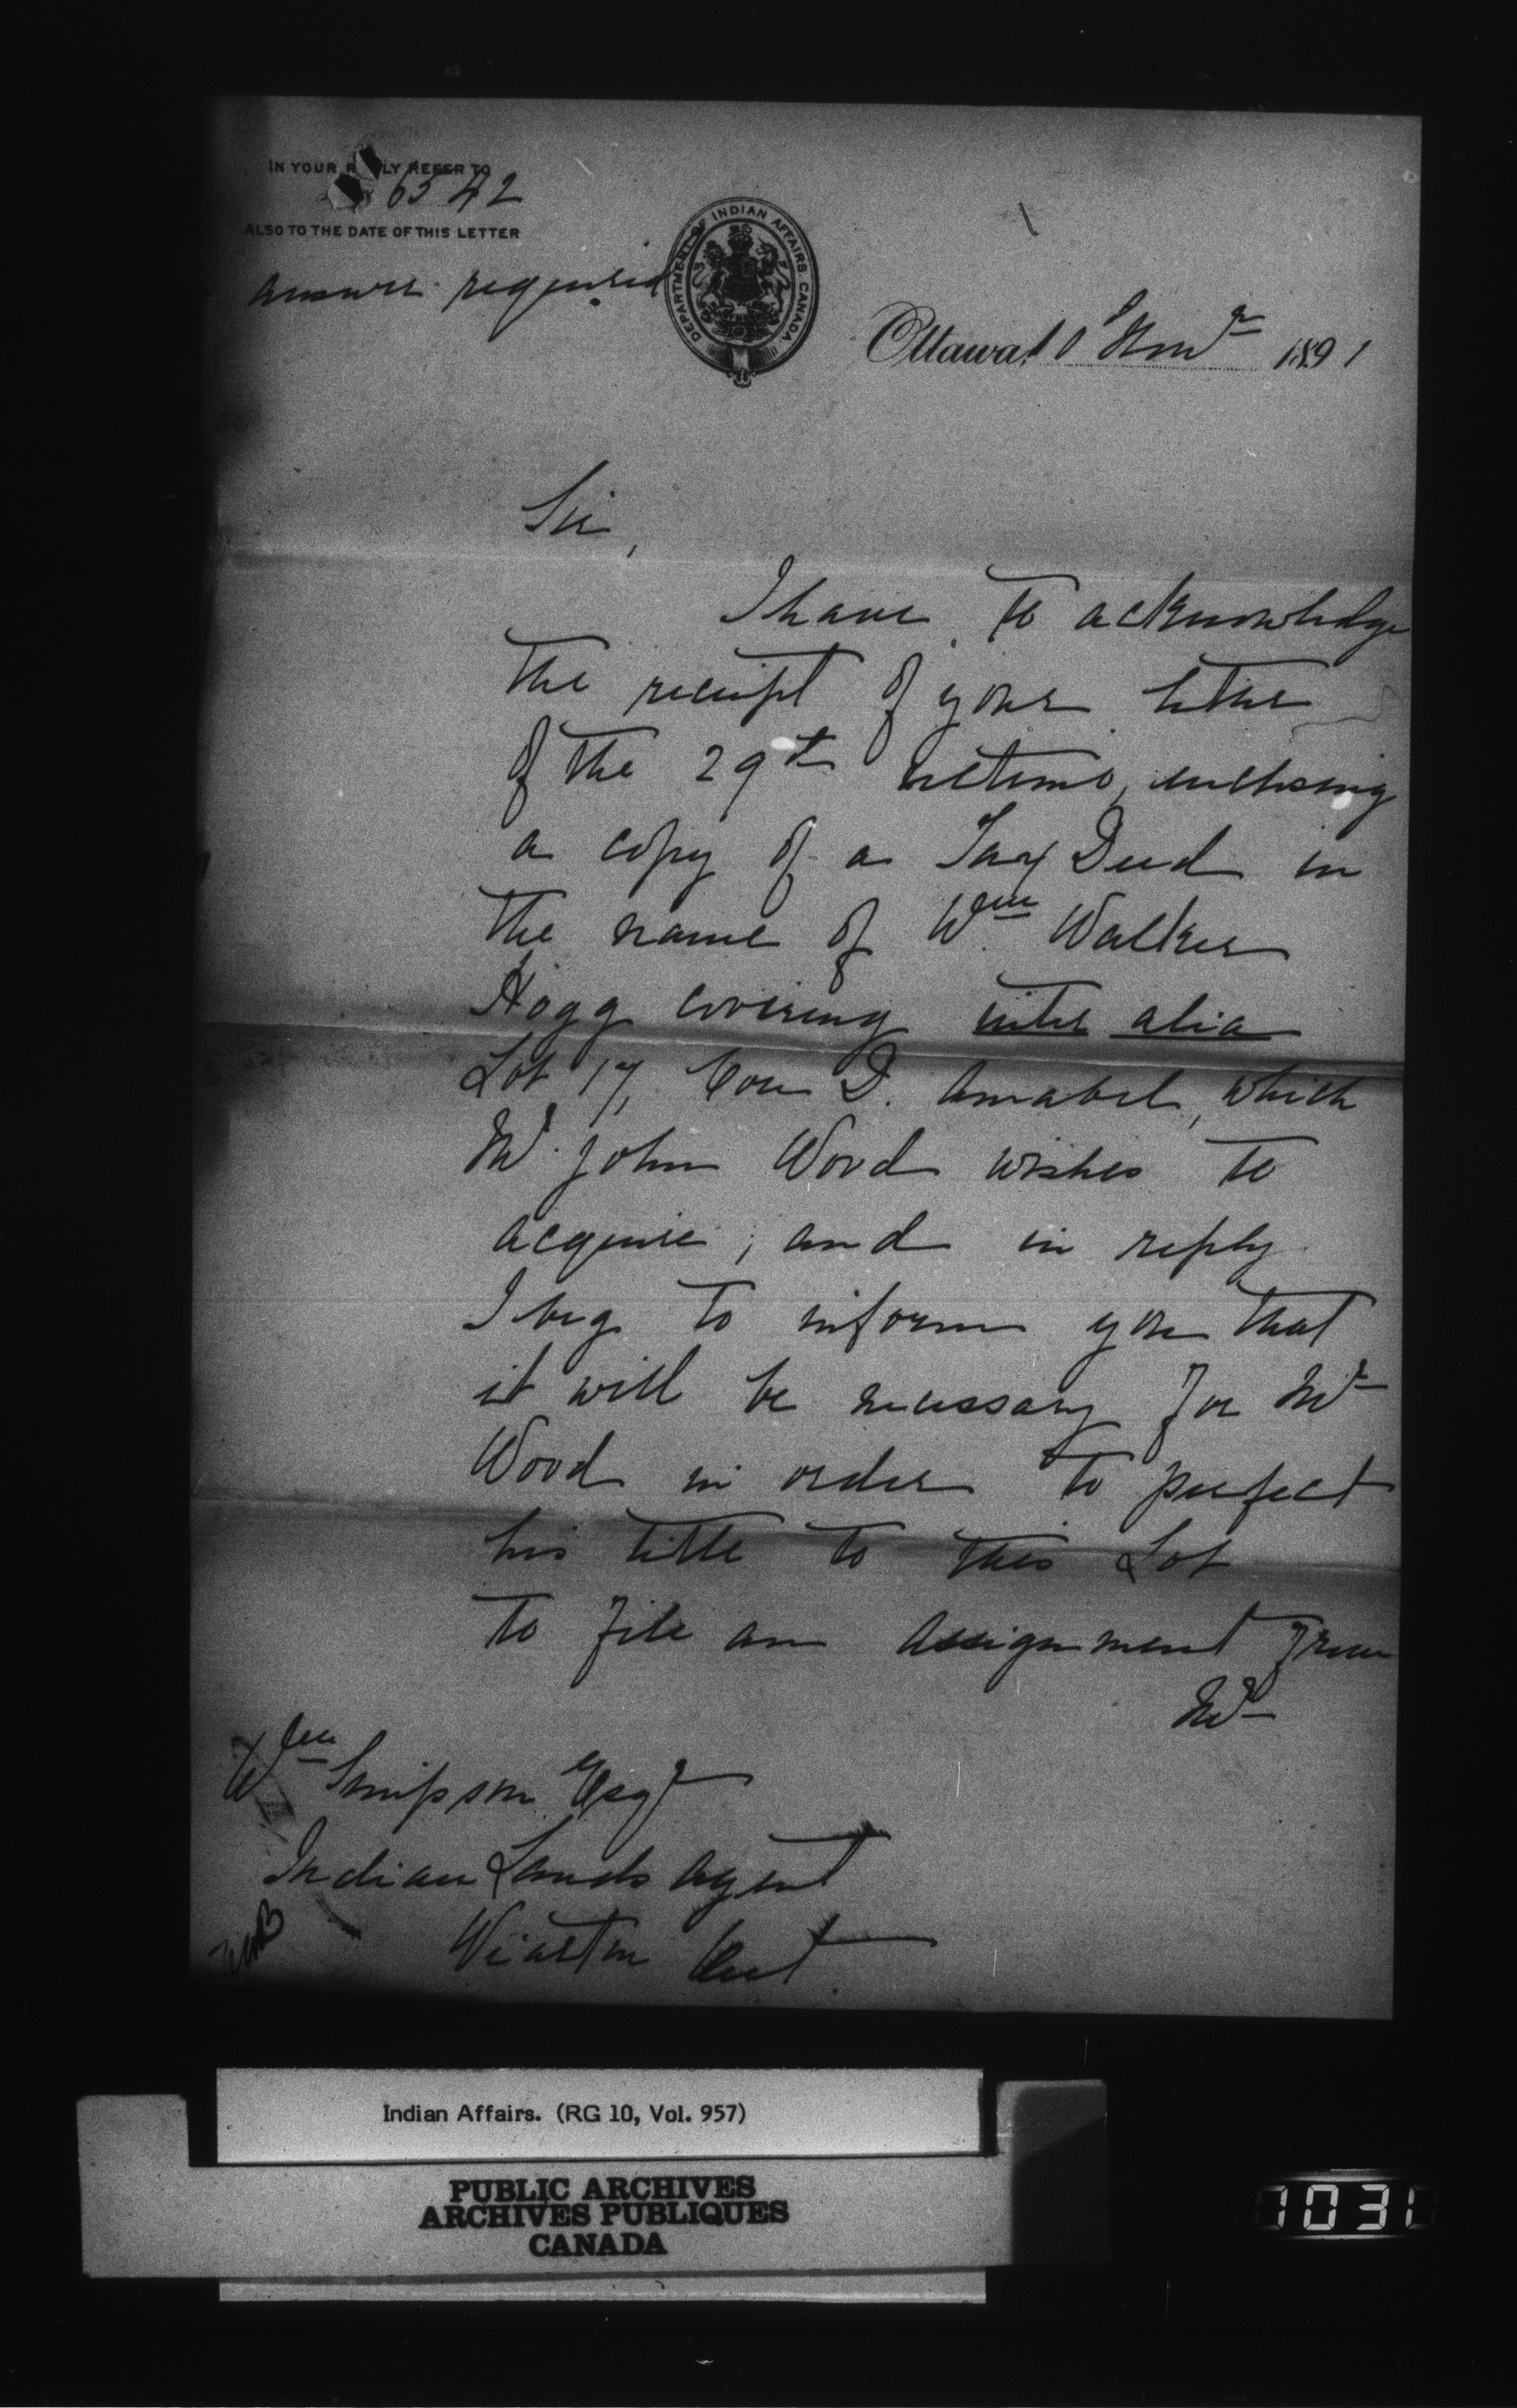 IN YOUR R LY REFER TO
6542
ALSO TO THE DATE OF THIS LETTER
answer required
DEPARTMENT OF INDIAN AFFAIRS. CANADA
Ottawa, 10 Novr 1891
Sir,
I have to acknowledge
the receipt of your letter
of the 29th ultimo, enclosing
a copy of a Tax Deed in
the name of Wm Walker
Hogg covering inter alia
Lot 17, Con D. Amabel, which
Mr John Wood wishes to
acquire; and in reply
I beg to inform you that
it will be necessary for Mr
Wood in order to perfect
his title to this Lot
to file an assignment from
Mr
Wm Simpson Esqr
Indian Lands Agent
Wiarton Ont
Indian Affairs. (RG 10, Vol. 957)
PUBLIC ARCHIVES
ARCHIVES PUBLIQUES
CANADA
1031